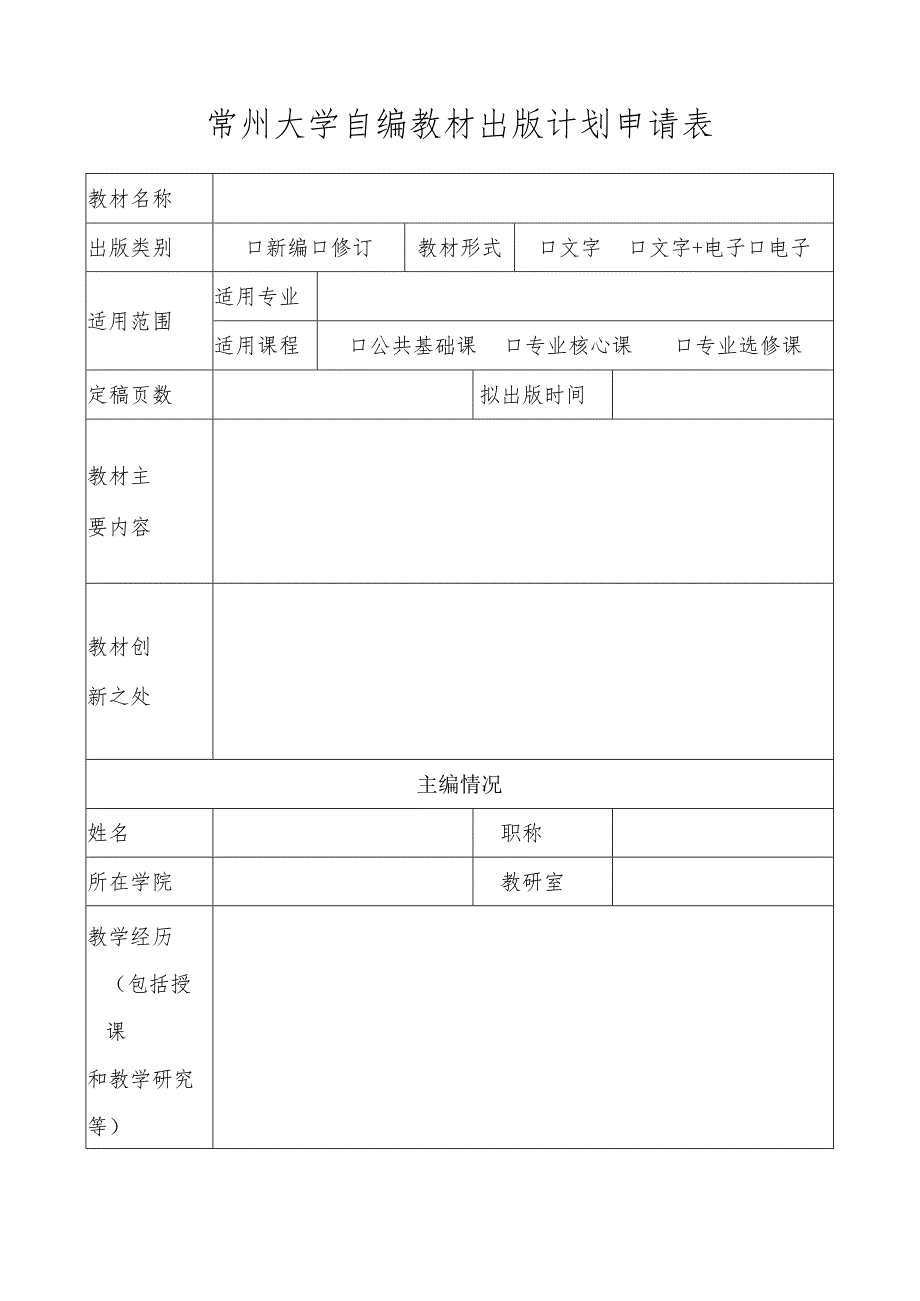 常州大学自编教材出版计划申请表
教材名称
出版类别 口新编口修订 教材形式 口文字 口文字+电子口电子
适用范围
适用专业
适用课程 口公共基础课 口专业核心课 口专业选修课
定稿页数 拟出版时间
教材主
要内容
教材创
新之处
主编情况
姓名 职称
所在学院 教研室
教学经历
（包括授
课
和教学研究
等）